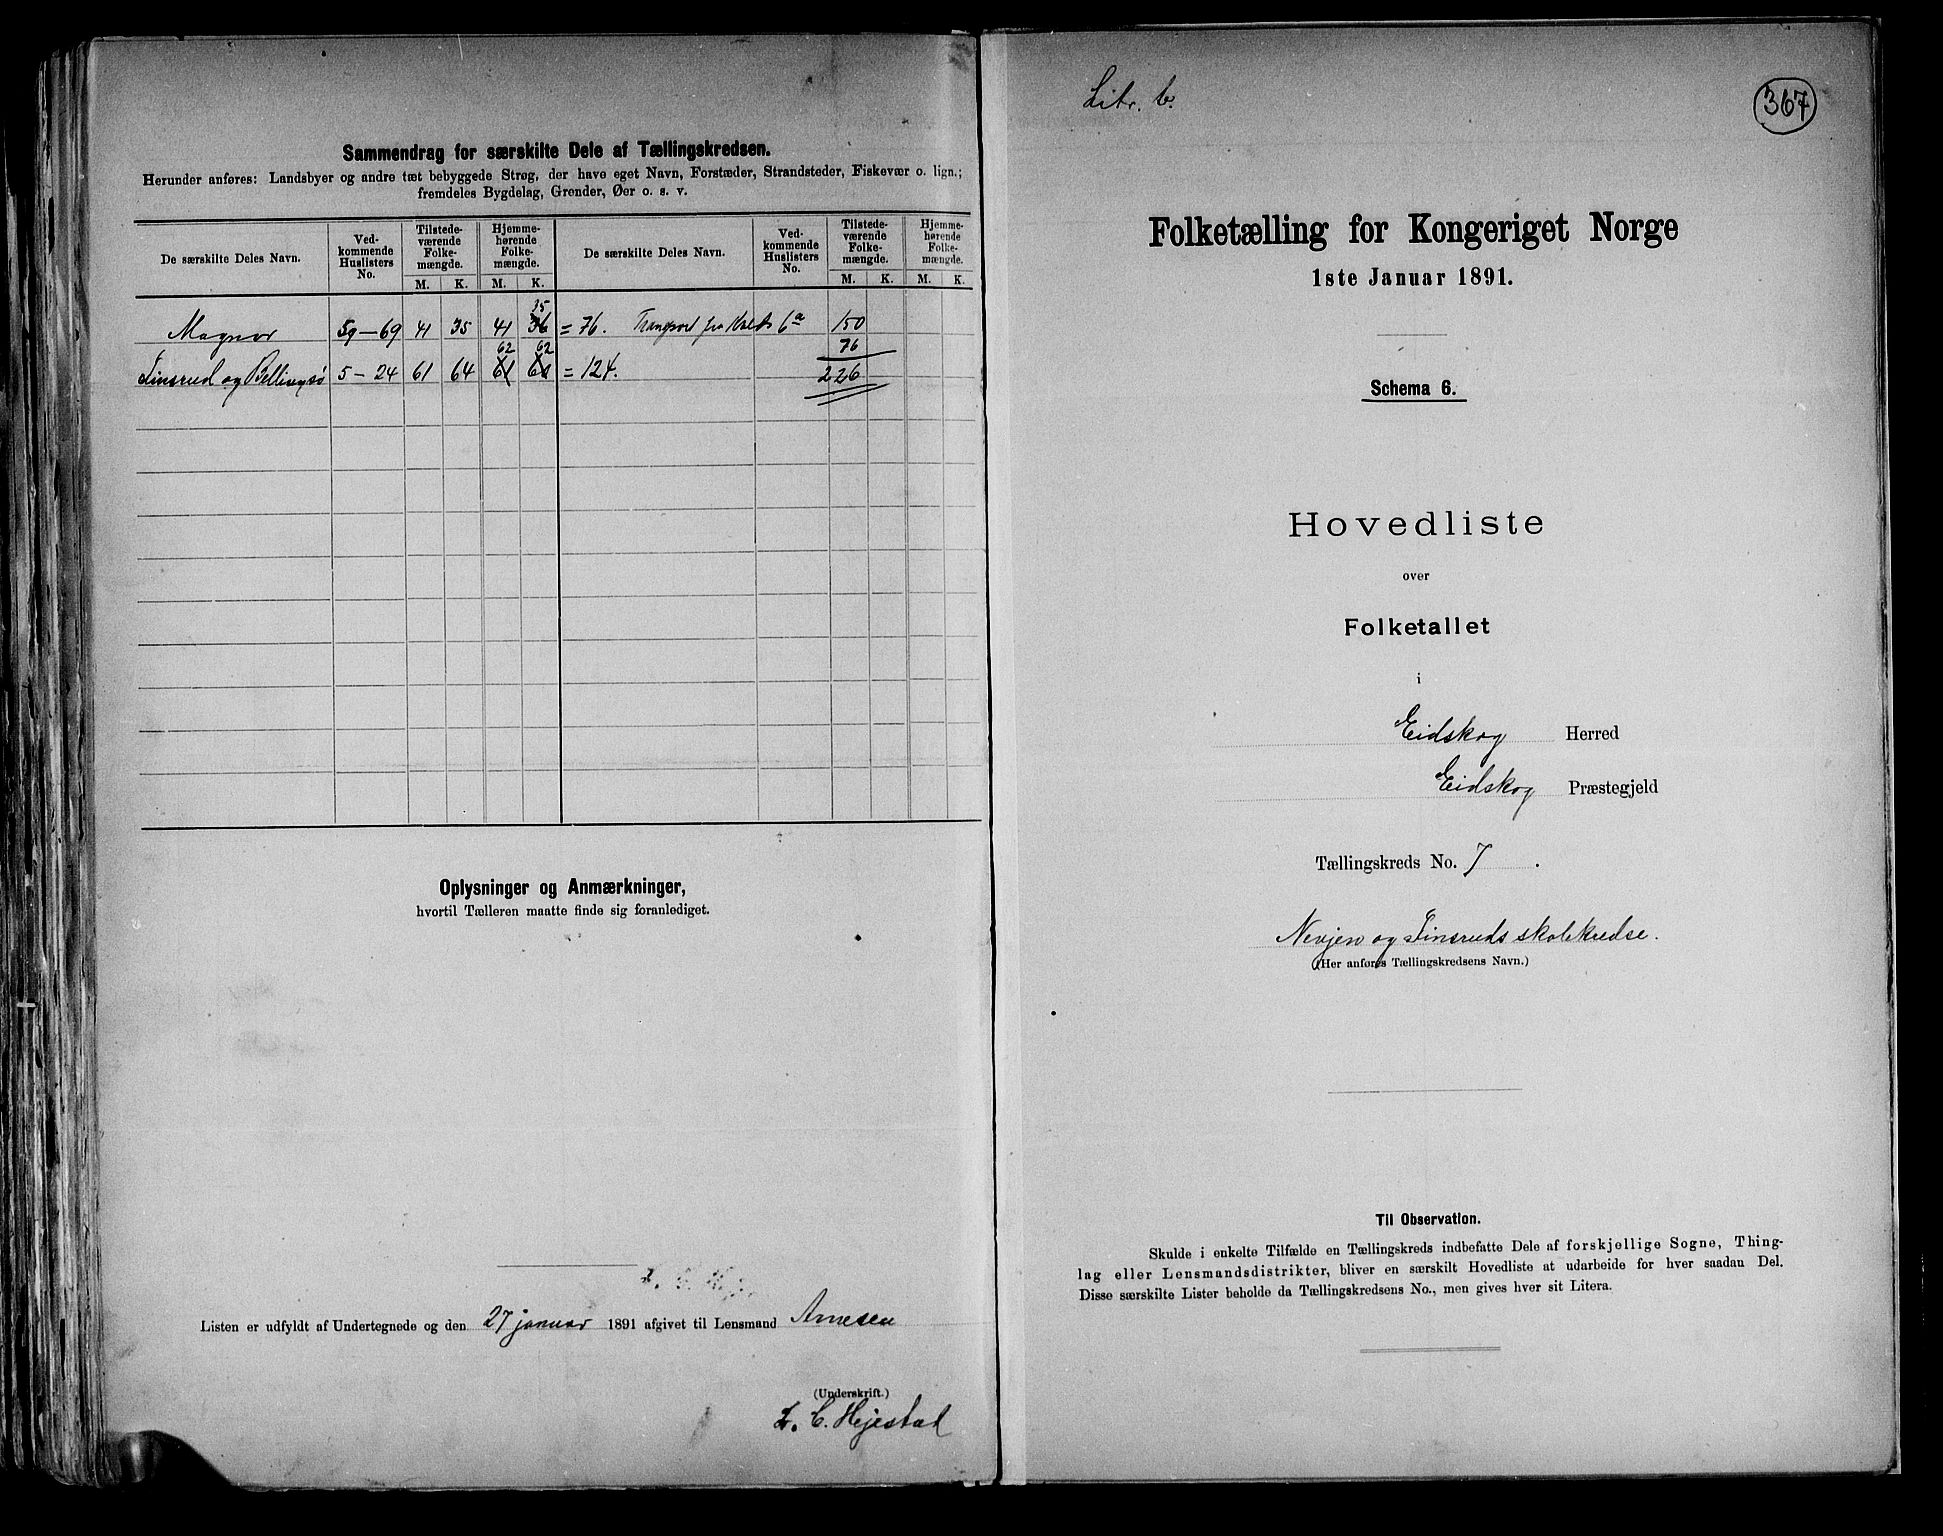 Sammendrag for særskilte Dele af Tællingskredsen.
Herunder anføres: Landsbyer og andre tæt bebyggede Strøg, der have eget Navn, Forstæder, Strandsteder, Fiskevær o. lign.;
fremdeles Bygdelag, Grender, Øer o. s. v.
De særskilte Deles Navn. Ved-kommende Huslisters No. Tilstede-værende Folke-mængde. Hjemme-hørende Folke-mængde. De særskilte Deles Navn. Ved-kommende Huslisters No. Tilstede-værende Folke-mængde. Hjemme-hørende Folke-mængde.
M. K. M. K. M. K. M. K.
35
Magnor 59-69 41 35 41 36 = 76. Transport fra Kreds 6a 150
62 62 76
Finsrud og Bellingsø 5-24 61 64 61 = 124. 226
Oplysninger og Anmærkninger,
hvortil Tælleren maatte finde sig foranlediget.
Listen er udfyldt af Undertegnede og den 27 januar 1891 afgivet til Lensmand Arnesen
(Underskrift.)
L. C. Hejestad
Litr. b.
367
Folketælling for Kongeriget Norge
1ste Januar 1891.
Schema 6.
Hovedliste
over
Folketallet
i
Eidskog Herred
Eidskog Præstegjeld
Tællingskreds No. 7.
Nevjen og Finsruds skolekredse.
(Her anføres Tællingskredsens Navn.)
Til Observation.
Skulde i enkelte Tilfælde en Tællingskreds indbefatte Dele af forskjellige Sogne, Thing-
lag eller Lensmandsdistrikter, bliver en særskilt Hovedliste at udarbeide for hver saadan Del.
Disse særskilte Lister beholde da Tællingskredsens No., men gives hver sit Litera.